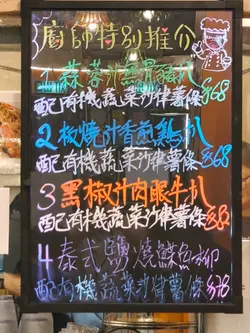 廚師特別推介
1 蒜蓉汁無骨豬扒
配有機蔬菜沙律薯條 $68
2 板燒汁香煎雞扒
配有機蔬菜沙律薯條 $68
3 黑椒汁肉眼牛扒
配有機蔬菜沙律薯條
4 泰式鹽燒鯕魚柳
配有機蔬菜沙律薯條 $78